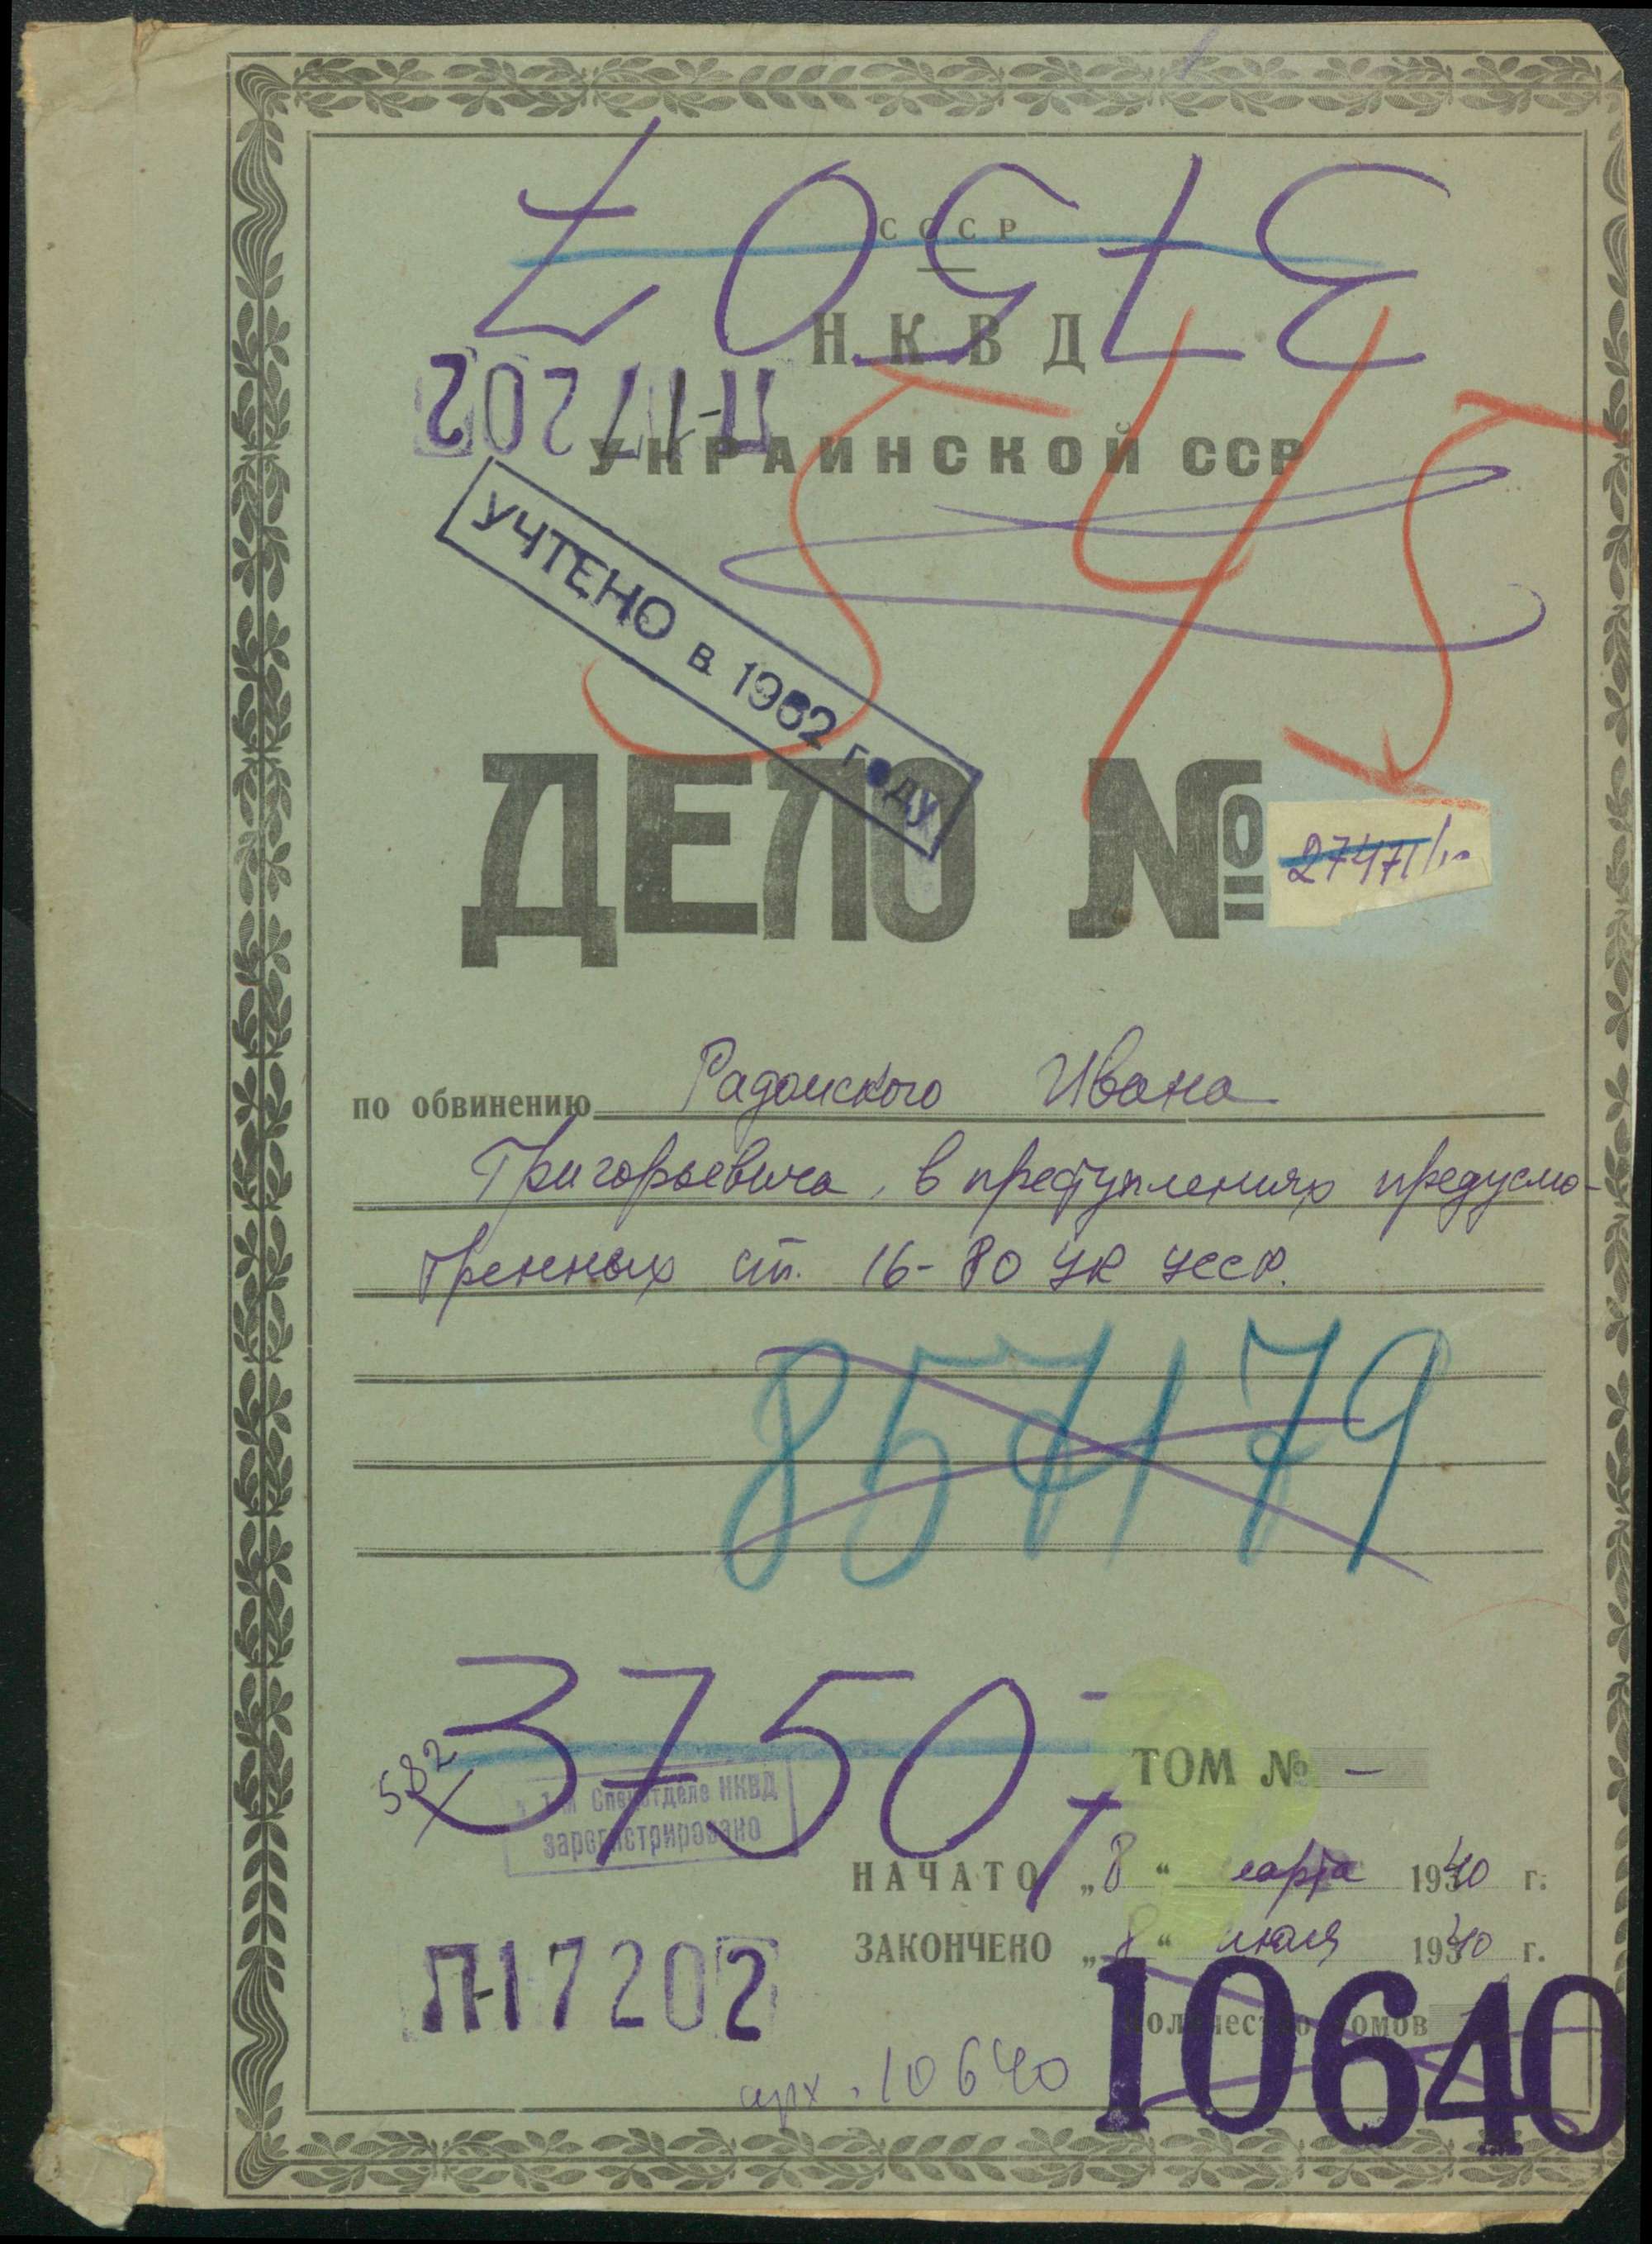 37507
СССР
НКВД
П-17202
УКРАИНСКОЙ ССР
545
УЧТЕНО в 1962 году
ДЕЛО №
27471/
по обвинению Радомского Ивана
Григорьевича, в преступлениях предусмо-
тренных ст. 16-80 УК УССР.
857179
37507
582
ТОМ № -
1-м Спецотделе НКВД
зарегистрировано
НАЧАТО „8“ марта 1940 г.
ЗАКОНЧЕНО „8“ июля 1940 г.
П-17202
Количество томов
10640
арх. 10640